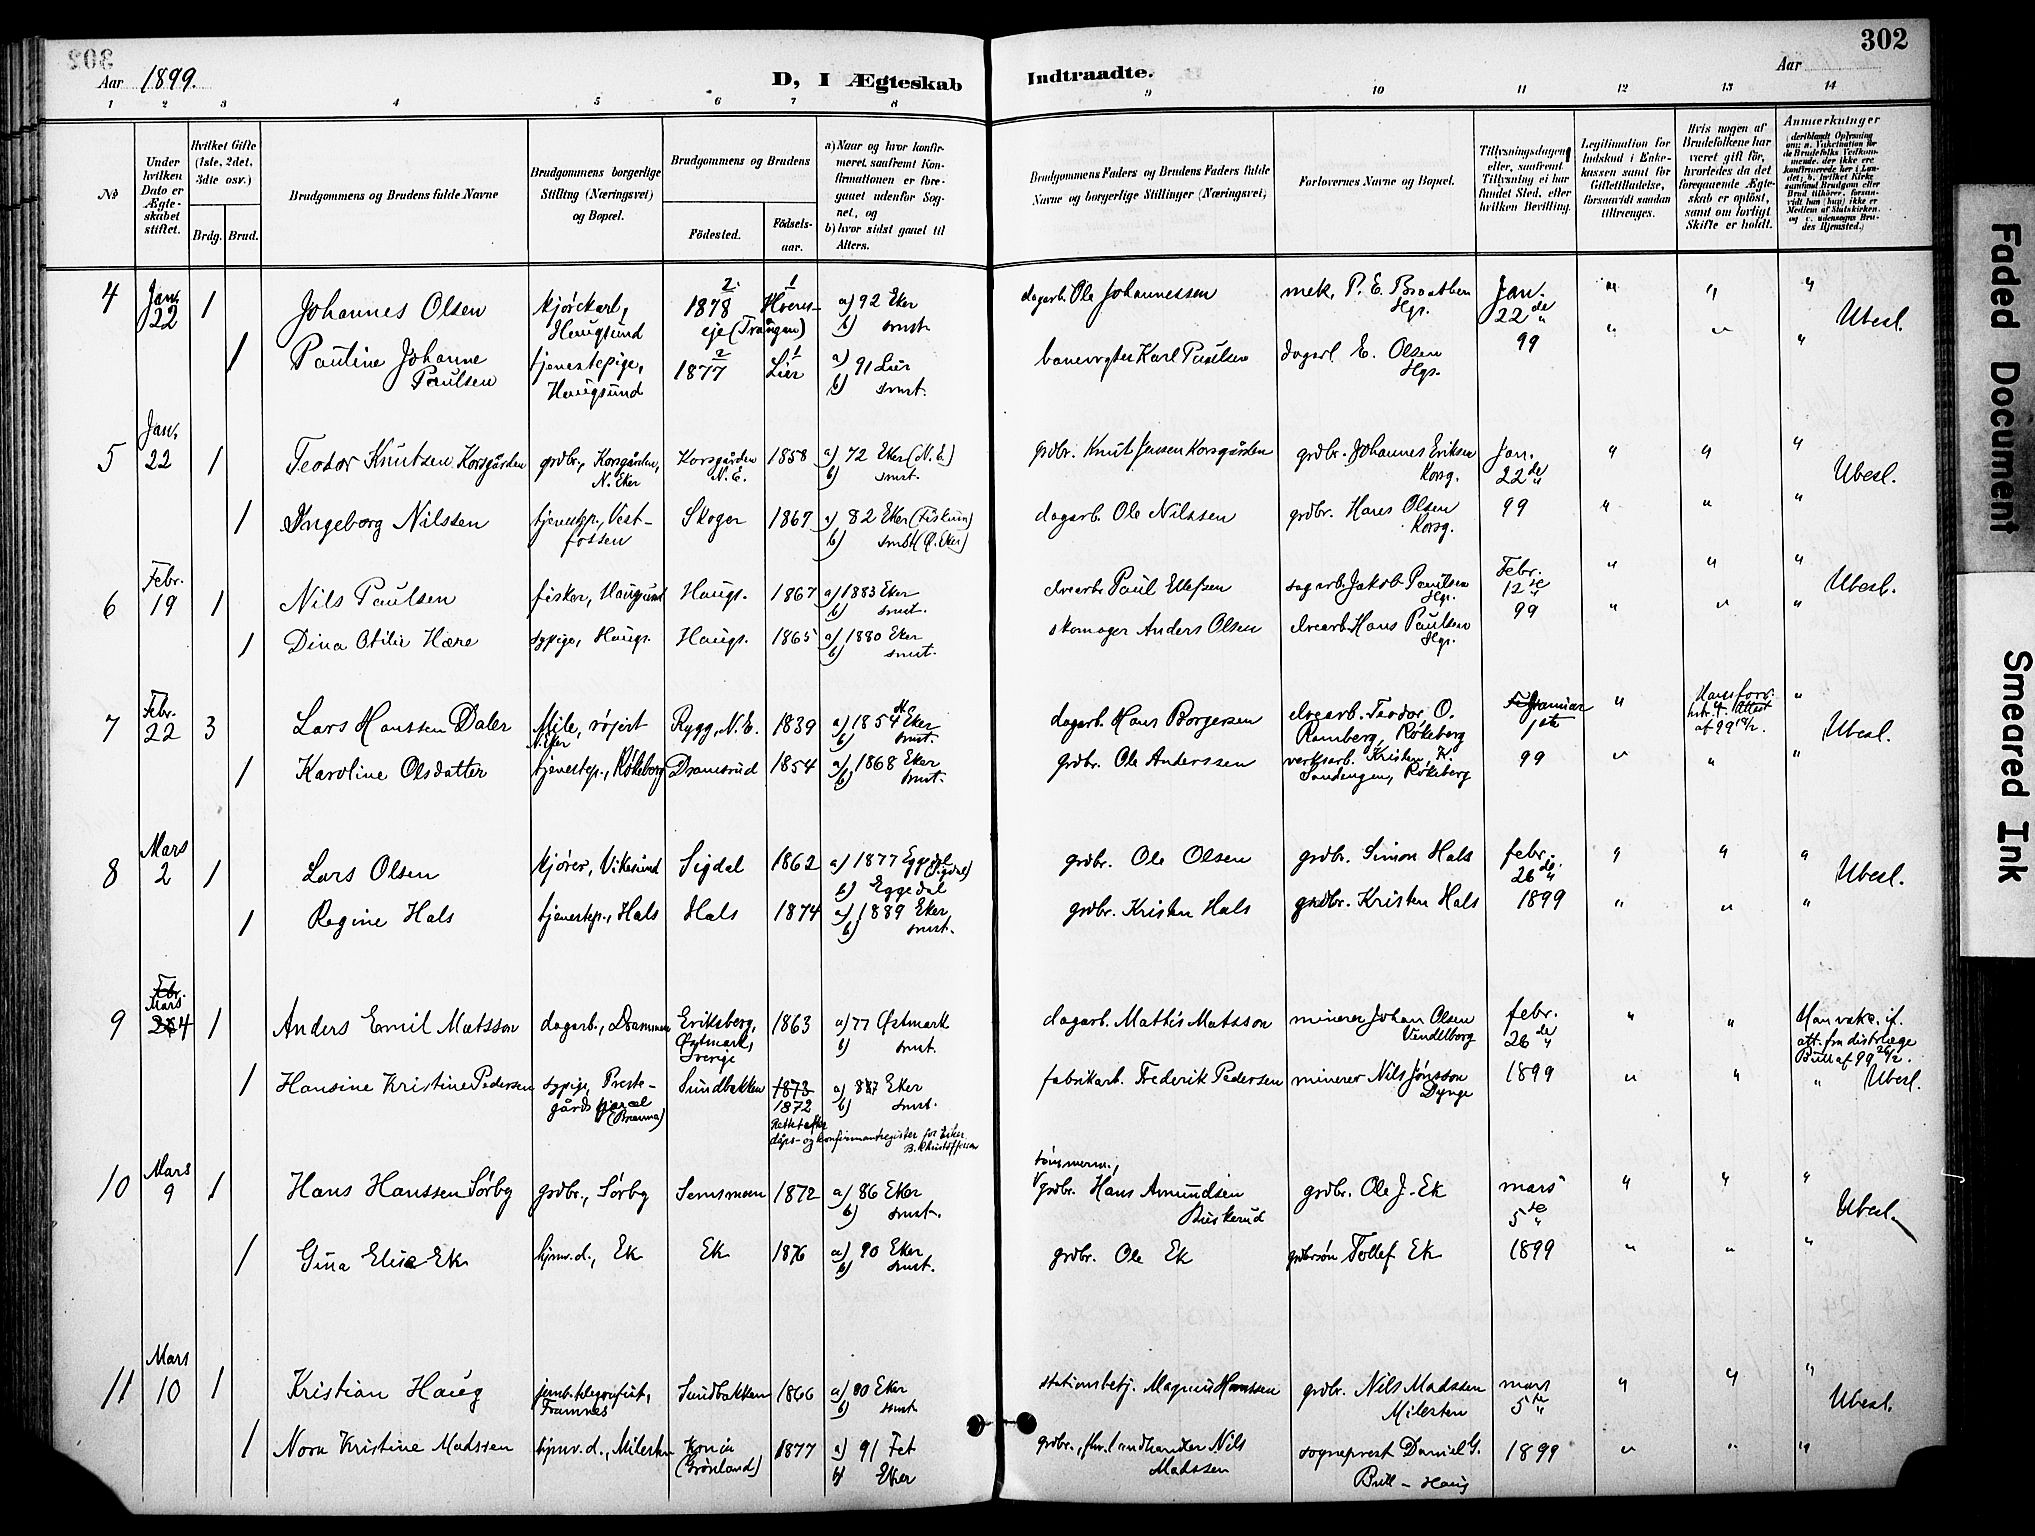 302
Aar 1899.
D, I Ægteskab Indtraadte.
Aar
1 2 3 4 5 6 7 8 9 10 11 12 13 14
No
Under hvilken Dato er Ægteskabet stiftet.
Hvilket Gifte (1ste, 2det, 3die osv.)
Brdg. Brud.
Brudgommens og Brudens fulde Navne
Brudgommens borgerlige Stilling (Næringsvei) og Bopæl.
Brudgommens og Brudens
Fødested.
Fødselsaar.
a) Naar og hvor konfirmeret, saafremt Konfirmationen er foregaaet udenfor Sognet, og
b) hvor sidst gaaet til Alters.
Brudgommens Faders og Brudens Faders fulde Navne og borgerlige Stillinger (Næringsvei)
Forlovernes Navne og Bopæl.
Tillysningsdagen eller, saafremt Tillysning ei har fundet Sted, efter hvilken Bevilling.
Legitimation for Indskud i Enkekassen samt for Giftetilladelse, forsaavidt saadan tiltrænges.
Hvis nogen af Brudefolkene har været gift før, hvorledes da det foregaaende Ægteskab er opløst, samt om lovligt Skifte er holdt.
Anmærkninger
4 Jan. 22 1 Johannes Olsen kjørekarl, Haugsund 1878 Hoens-eje (Trangen) a) 92 Eker b) smst. dagarb. Ole Johannessen mek. P. E. Braathen Hgs. Jan. 22de 99 " " " Ubesl.
1 Pauline Johanne Paulsen tjenestepige, Haugsund 1877 Lier a) 91 Lier b) smst. banevogter Karl Paulsen dagarb. E. Olsen Hgs. " " "
5 Jan. 22 1 Teodor Knutsen Korsgården grdbr., Korsgården, N. Eker Korsgården N. E. 1858 a) 72 Eker (N. E.) b) smst. grdbr. Knut Jensen Korsgården grdbr. Johannes Eriksen Korsg. Jan. 22de 99 " " " Ubesl.
1 Ingeborg Nilssen tjenestep., Vestfossen Skoger 1867 a) 82 Eker (Fiskum) b) smst (Ø. Eker) dagarb. Ole Nilssen grdbr. Hans Olsen Korsg. " " "
6 Febr. 19 1 Nils Paulsen fisker, Haugsund Haugs. 1867 a) 1883 Eker b) smst. elvearb. Paul Ellefsen sagarb. Jakob Paulsen Hgs. Febr. 12te 99 " " " Ubesl.
1 Dina Otilie Hære sypige, Haugs. Haugs. 1865 a) 1880 Eker b) smst. skomager Anders Olsen elvearb. Hans Paulsen Hgs. " " "
7 Febr. 22 3 Lars Hanssen Daler Mile, N. Eker Rygg, N. E. 1839 a) 1854 Eker b) smst. dagarb. Hans Borgersen elvearb. Teodor O. Ramberg, Røkeberg Januar 1ste 99 " Hans forr. " Ubesl.
1 Karoline Olsdatter tjenestep., Røkeberg Dramsrud 1854 a) 1868 Eker b) smst. grdbr. Ole Anderssen verksarb. Kristen K. Sandengen, Røkeberg " " "
8 Mars 2 1 Lars Olsen kjører, Vikesund Sigdal 1862 a) 1877 Eggedal (Sigdal) b) Eggedal grdbr. Ole Olsen grdbr. Simon Hals febr. 26de 1899 " " " Ubesl.
1 Regine Hals tjenestep., Hals Hals 1874 a) 1889 Eker, b) smst. grdbr. Kristen Hals grdbr. Kristen Hals " " "
9 Febr. Mars 4 1 Anders Emil Matsson dagarb., Drammen Eriksberg, Østmark, Sverige 1863 a) 77 Østmark b) smst. dagarb. Mathis Matsson minerer Johan Olsen Vendelborg febr. 26de 1899 " " Han vakc. if. att. fra distrlæge Bull af 99 26/2.
1 Hansine Kristine Pedersen sypige, Prestegårds (Brænna) Sundbakken 1873 1872 a) 87 Eker b) smst. fabrikarb. Frederik Pedersen minerer Nils Jønsson Dynge " " " Ubesl.
Rettet efter dåps- og konfirmantregister for Eker B. Christoffersen
10 Mars 9 1 Hans Hanssen Sørby grdbr., Sørby Semsmoen 1872 a) 86 Eker b) smst. tømmerm., grdbr. Hans Amundsen Buskerud grdbr. Ole J. Ek mars 5te 1899 " " " Ubesl.
1 Gina Elise Ek hjmv. d., Ek Ek 1876 a) 90 Eker b) smst. grdbr. Ole Ek grdbrsøn Tollef Ek " " "
11 Mars 10 1 Kristian Haug jernb.telegrafist, Framnes Sundbakken 1866 a) 80 Eker b) smst. stationsbetj. Magnus Hanssen grdbr. Nils Madssen Milesten mars 5te 1899 " " " Ubesl.
1 Nora Kristine Madssen hjmv. d., Milesten (Grønland) 1877 a) 91 Fet b) Eker grdbr., fhv. landhandler Nils Madssen sogneprest Daniel G. Bull - Haug " " "
Faded Document
Smeared Ink